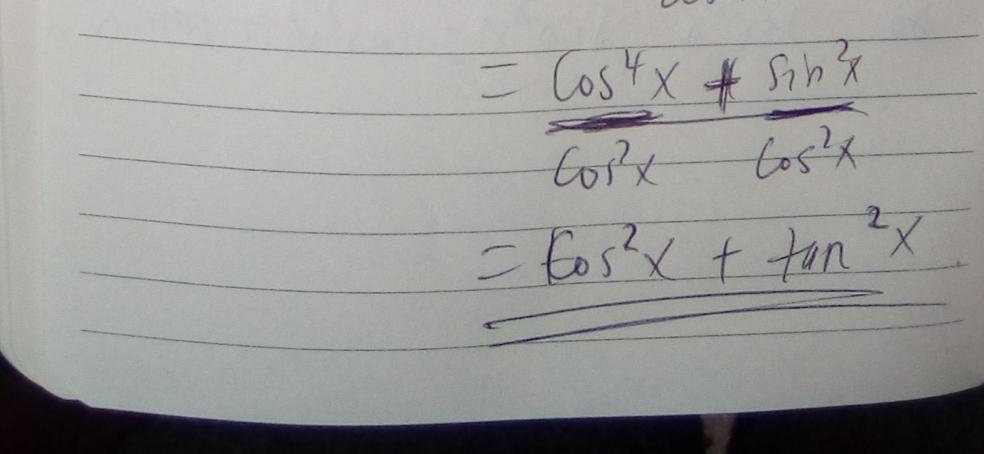 = Cos⁴x + sin²x
Cos²x Cos²x
= Cos²x + tan²x